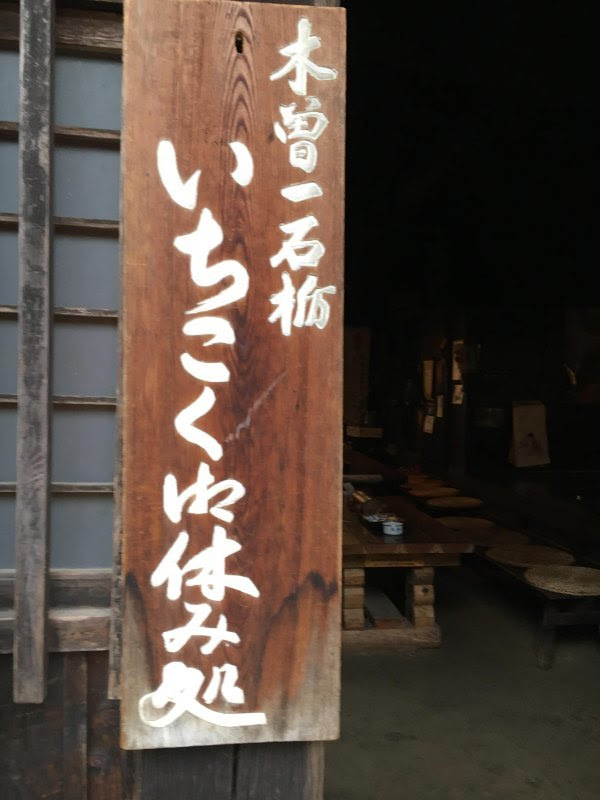 木曽一石栃
いちこく御休み処